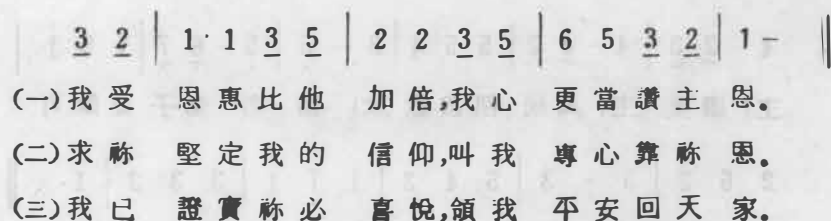 3 2 | 1· 1 3 5 | 2 2 3 5 | 6 5 3 2 | 1 – ||
(一)我受 恩惠比他 加倍,我心 更當讚主 恩。
(二)求祢 堅定我的 信仰,叫我 專心靠祢 恩。
(三)我已 證實祢必 喜悅,領我 平安回天 家。